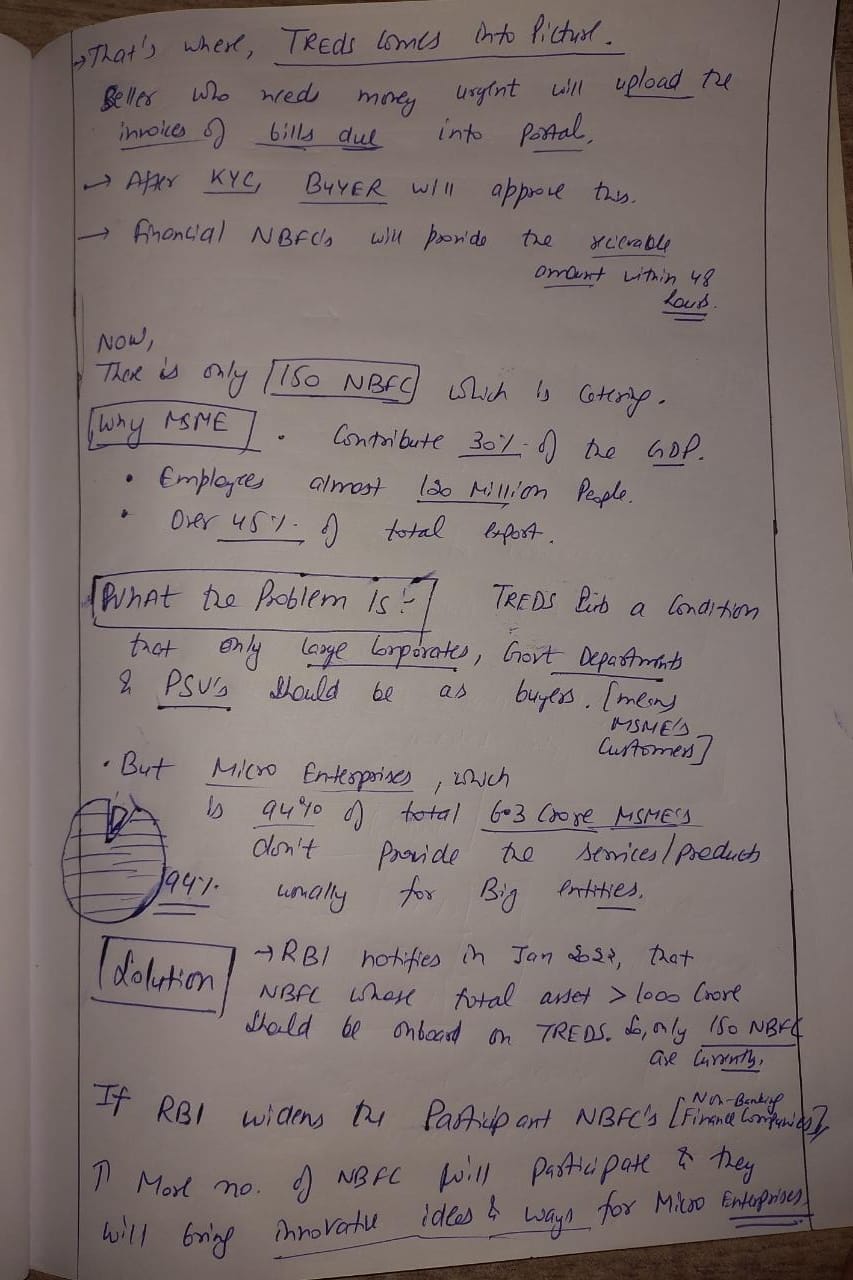 → That's where, TREDs comes into Picture.
Seller who needs money urgent will upload the
invoices of bills due into Portal.
→ After KYC, BUYER will approve this.
→ financial NBFC's will provide the recievable
amount within 48
hours.
NOW,
There is only 150 NBFC which is catering.
Why MSME • Contribute 30% of the GDP.
• Employees almost 120 Million People.
• Over 45% of total export.
What the Problem is :- TREDS Puts a Condition
that only large Corporates, Govt Departments
& PSU's should be as buyers. [means
MSME's
Customers]
• But Micro Enterprises, which
is 94% of total 6.3 Crore MSME's
don't Provide the services/products
usually for Big entities.
94%
Solution → RBI notifies in Jan, that
NBFC whose total asset > 1000 Crore
should be onboard on TREDS. So, only 150 NBFC
are currently.
If RBI widens the Participant NBFC's [Non-Banking
Finance Companies],
↑ More no. of NBFC will Participate & they
will bring innovative ideas & ways for Micro Enterprises